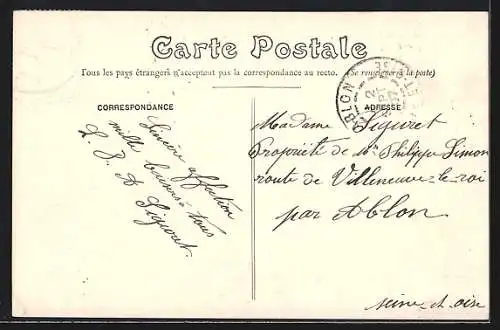 Carte Postale
Tous les pays étrangers n'acceptent pas la correspondance au recto. (Se renseigner à la poste)
CORRESPONDANCE
ADRESSE
Sincère affection
mille baisers à tous
L. P. A
Siguret
ABLON
Madame Siguret
Propriété de Mr Philippe Simon
route de Villeneuve-le-roi
par Ablon
Seine-et-oise